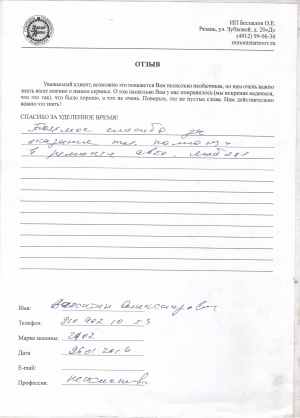 ИП Беспалов О.Е.
Рязань, ул. Зубковой, д. 20«Д»
(4912) 99-06-36
remontstarterov.ru
ОТЗЫВ
Уважаемый клиент, возможно это покажется Вам несколько необычным, но нам очень важно
знать ваше мнение о нашем сервисе. О том насколько Вам у нас понравилось (мы искренне надеемся,
что это так), что было хорошо, а что не очень. Поверьте, это не пустые слова. Нам действительно
важно это знать!
СПАСИБО ЗА УДЕЛЕННОЕ ВРЕМЯ!
спасибо за
оказание тех. помощи
в ремонте авто,
Имя: Валентин Александрович
Телефон: 910 902 10 53
Марка машины: 2402
Дата 26 01 2016
E-mail:
Профессия: